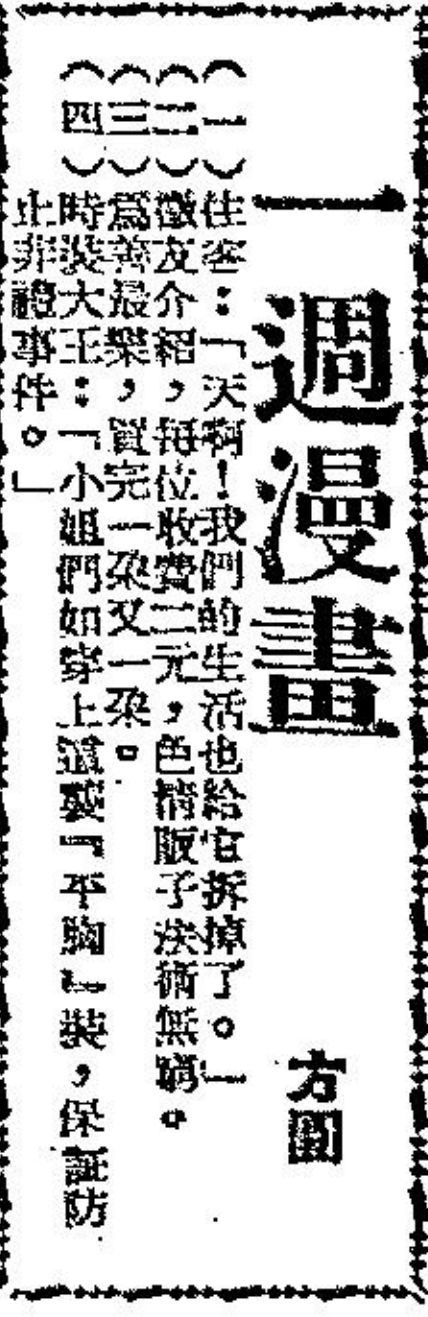 一週漫畫
方圓
（一）住客：「天啊！我們的生活也給它拆掉了。」
（二）徵友介紹，每位收費二元，色情販子法術無窮。
（三）爲善最樂，買完一朶又一朶。
（四）時裝大王：「小姐們如穿上這襲『平胸』裝，保証防
止非禮事件。」